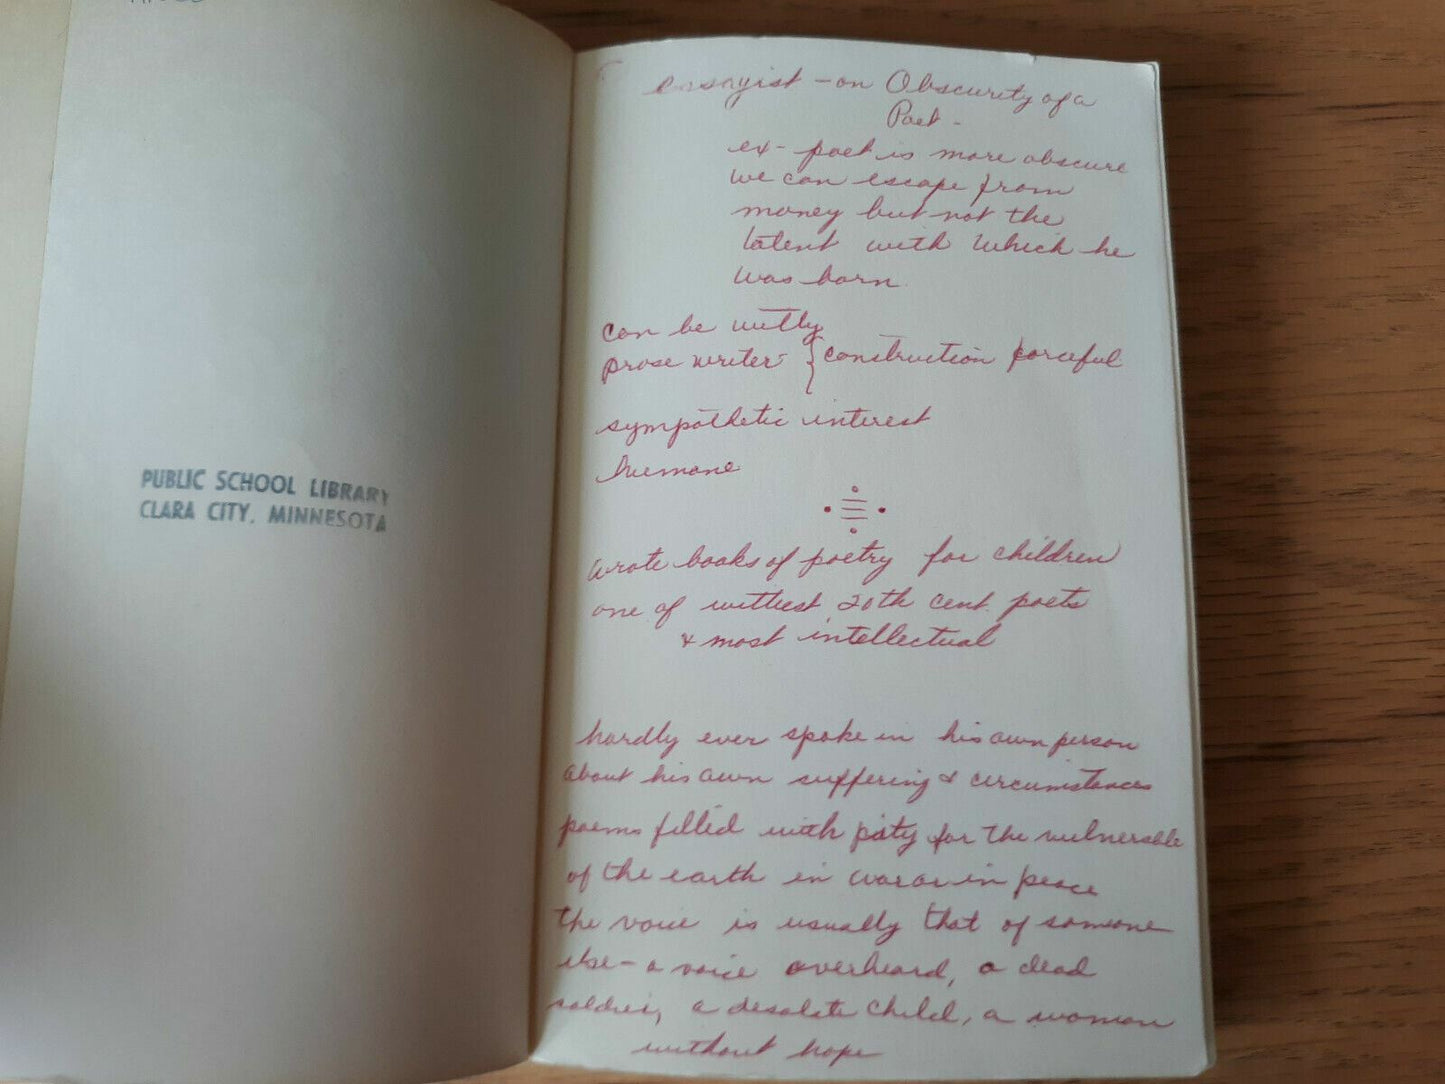 PUBLIC SCHOOL LIBRARY
CLARA CITY, MINNESOTA
essayist - on Obscurity of a
Poet -
ex - poet is more obscure
we can escape from
money but not the
talent with which he
was born.
can be witty
prose writer - { construction forceful
sympathetic interest
humane
wrote books of poetry for children
one of wittiest 20th cent. poets
& most intellectual
hardly ever spoke in his own person
about his own suffering & circumstances
poems filled with pity for the vulnerable
of the earth in war or in peace
the voice is usually that of someone
else - a voice overheard, a dead
soldier, a desolate child, a woman
without hope